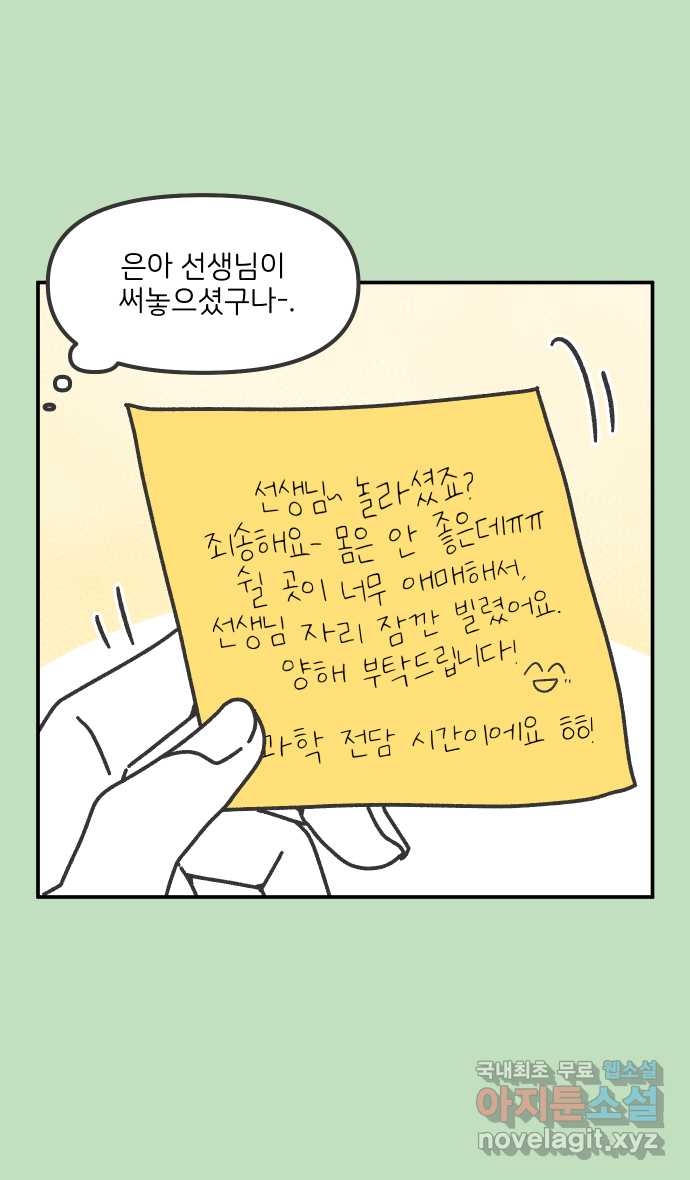 은아 선생님이
써놓으셨구나-.
선생님~ 놀라셨죠?
죄송해요- 몸은 안 좋은데ㅠㅠ
쉴 곳이 너무 애매해서,
선생님 자리 잠깐 빌렸어요.
양해 부탁드립니다!
과학 전담 시간이에요 힝!
국내최초 무료 웹소설
아지툰소설
novelagit.xyz